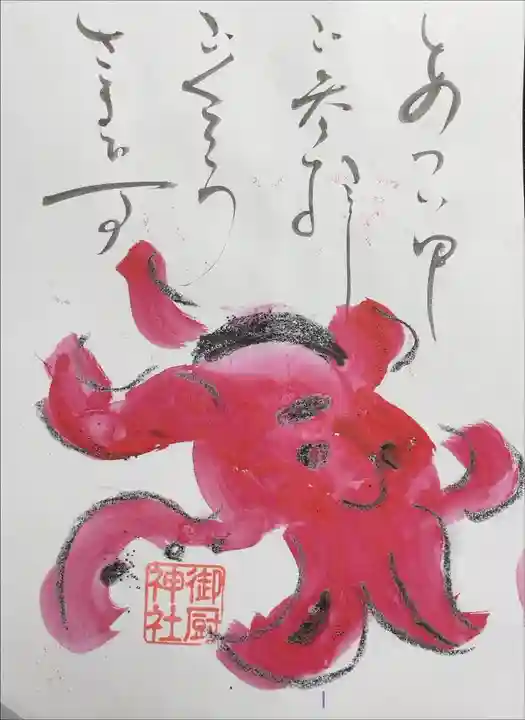 おあつい中
ご参拝
ごくろう
さまです
御厨
神社